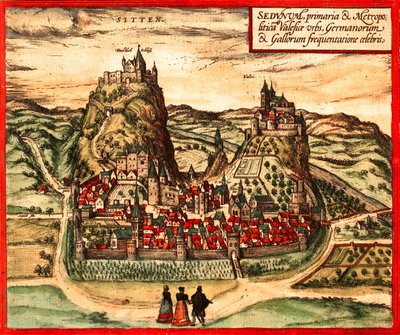 SITTEN.
SEDVNVM, primaria & Metropo,
litica Valesiæ vrbs, Germanorum
& Gallorum frequentatione celebris.